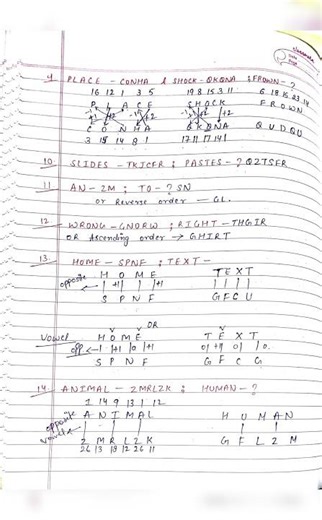 9. PLACE - CONMA & SHOCK - QKQNA ; FROWN - ?
16 12 1 3 5 19 8 15 3 11 6 18 15 23 14
P L A C E S H O C K F R O W N
C O N M A Q K Q N A Q U D Q U
3 15 14 8 1 17 11 17 14 1
10. SLIDES - TKJCFR ; PASTES - ? QZTSFR
11. AN - ZM ; TO - ? SN
or Reverse order - GL.
12. WRONG - GNORW ; RIGHT - THGIR
OR Ascending order → GHIRT
13. HOME - SPNF ; TEXT -
opposite H O M E T E X T
S P N F G F C U
OR
Vowel H O M E T E X T
opp
S P N F G F C G
14. ANIMAL - ZMRLZK ; HUMAN - ?
1 14 9 13 1 12
opposite A N I M A L H U M A N
vowels
Z M R L Z K G F L Z M
26 13 18 12 26 11